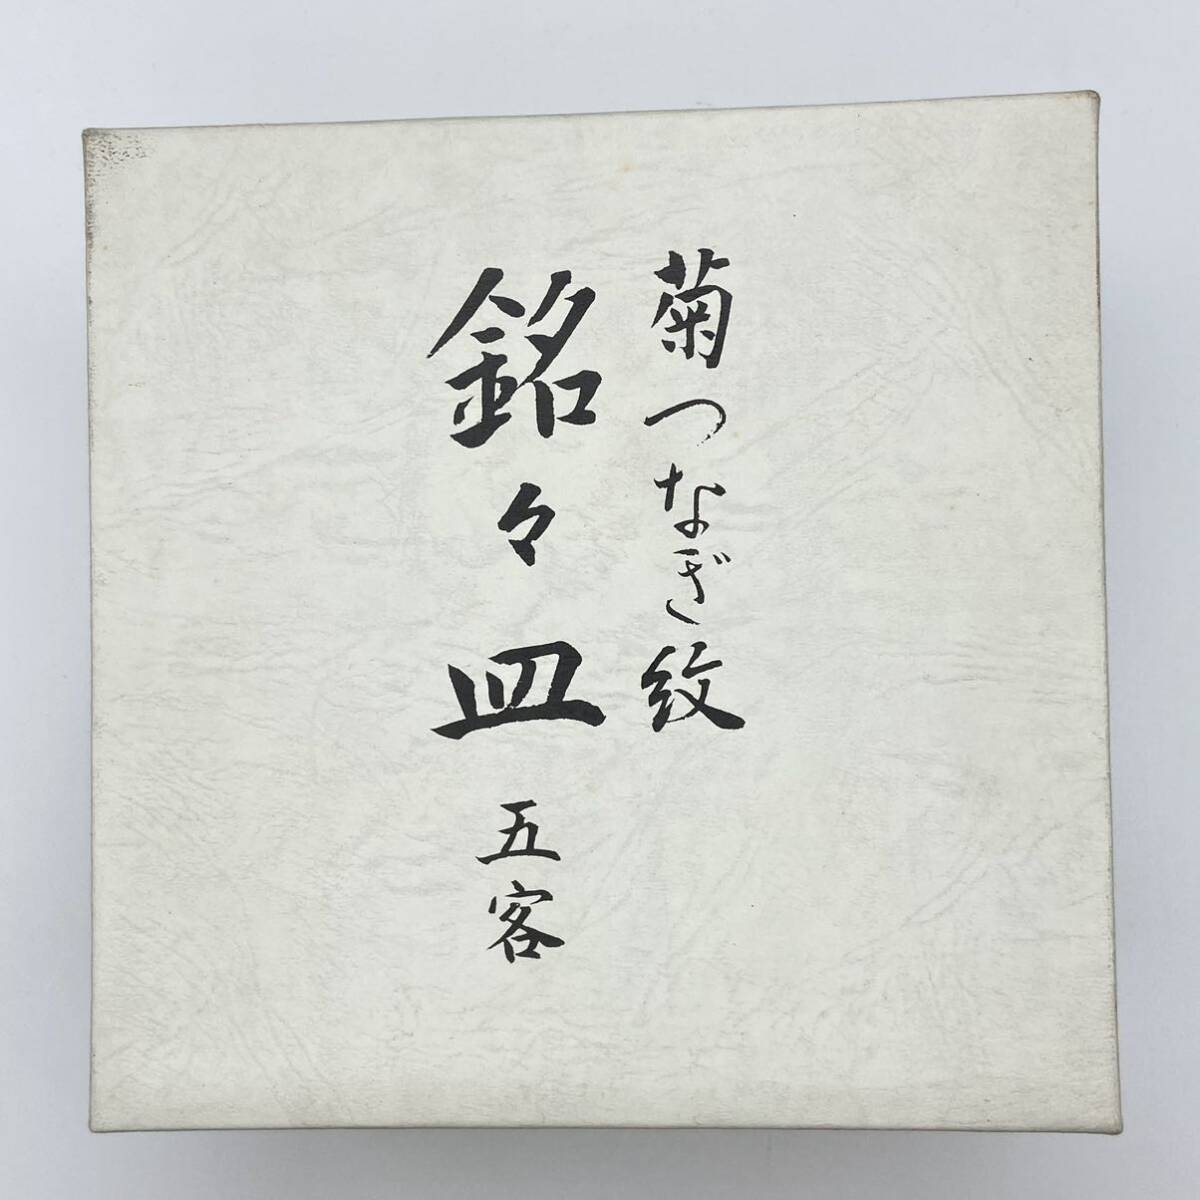 菊つなぎ紋
銘々皿 五客